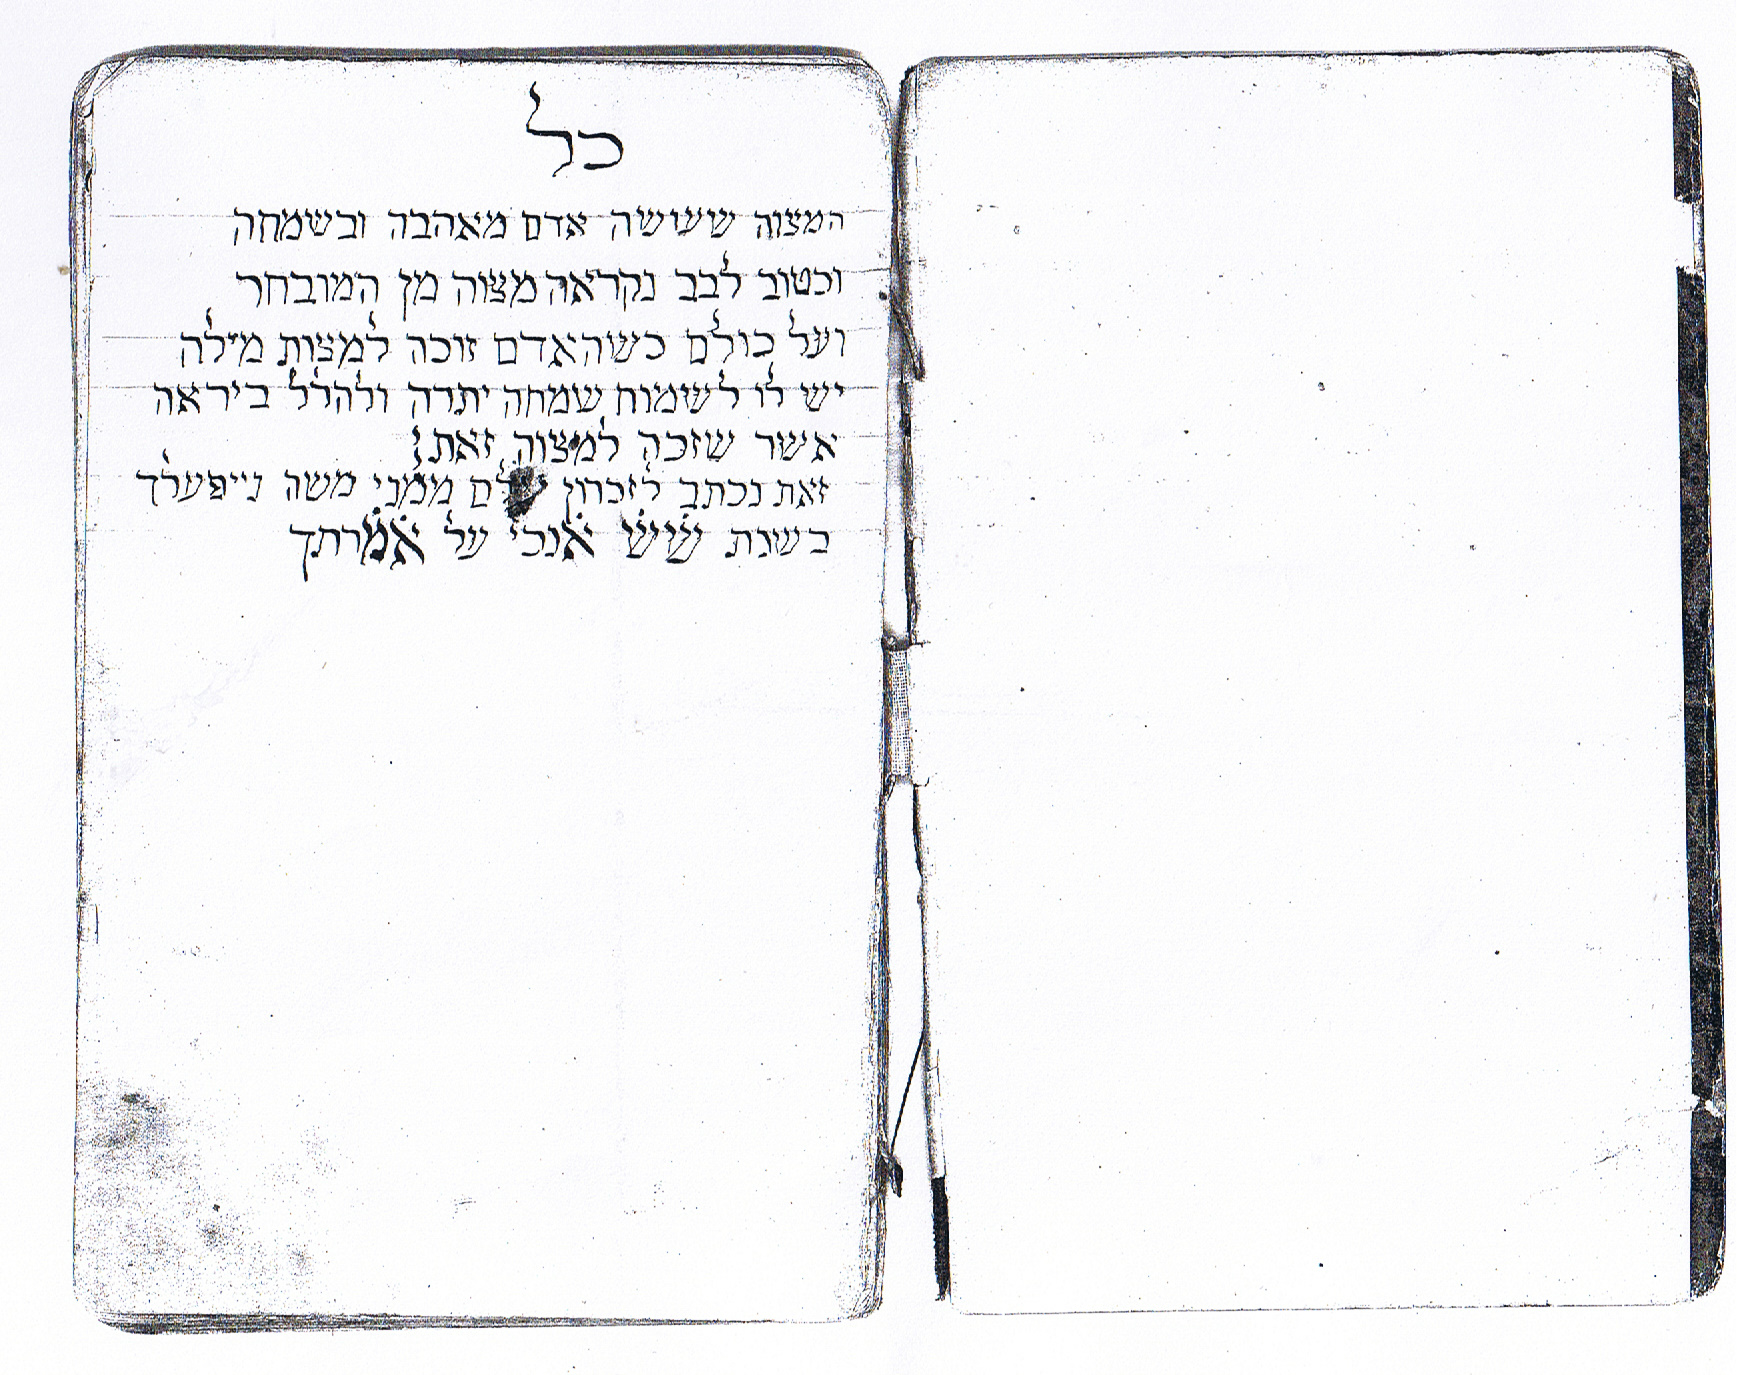 כל
המצוה שעושה אדם מאהבה ובשמחה
וכטוב לבב נקראה מצוה מן המובחר
ועל כולם כשהאדם זוכה למצות מילה
יש לו לשמוח שמחה יתרה ולהלל ביראה
אשר שזכה למצוה זאת!
זאת נכתב לזכרון ממני משה נייפעלך
בשנת שׂשׂ אנכי על אמרתך